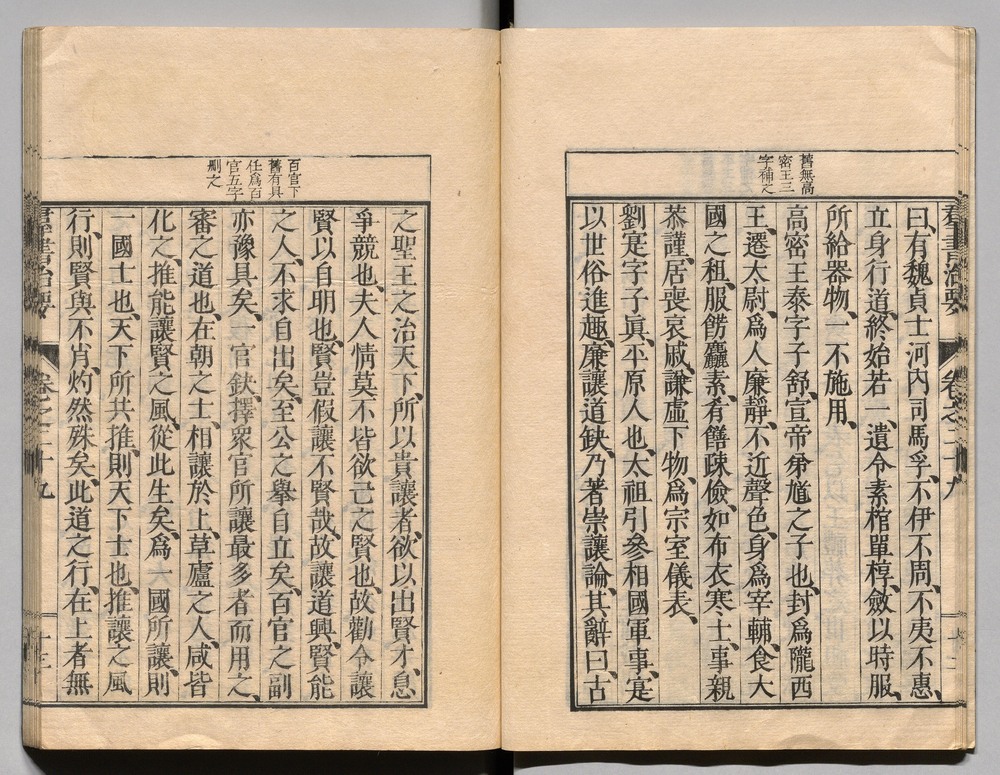 舊無高
密王三
字補之
曰、有魏貞士河內司馬孚、不伊不周、不夷不惠、
立身行道、終始若一、遺令素棺單椁、斂以時服、
所給器物、一不施用、
高密王泰字子舒、宣帝弟馗之子也、封爲隴西
王、遷太尉、爲人廉靜、不近聲色、身爲宰輔、食大
國之租、服餝麤素、肴饍疎儉、如布衣寒士、事親
恭謹、居喪哀戚、謙虛下物、爲宗室儀表、
劉寔字子眞、平原人也、太祖引參相國軍事、寔
以世俗進趣、廉讓道缺、乃著崇讓論、其辭曰、古
群書治要
卷之二十九
百官下
舊有具
任爲百
官五字
刪之
之聖王之治天下、所以貴讓者、欲以出賢才、息
爭競也、夫人情莫不皆欲己之賢也、故勸令讓
賢以自明也、賢豈假讓不賢哉、故讓道興、賢能
之人、不求自出矣、至公之擧自立矣、百官之副
亦豫具矣、一官缺、擇衆官所讓最多者而用之、
審之道也、在朝之士、相讓於上、草廬之人、咸皆
化之、推能讓賢之風、從此生矣、爲一國所讓、則
一國士也、天下所共推、則天下士也、推讓之風
行、則賢與不肖、灼然殊矣、此道之行、在上者無
群書治要
卷之二十九
十三